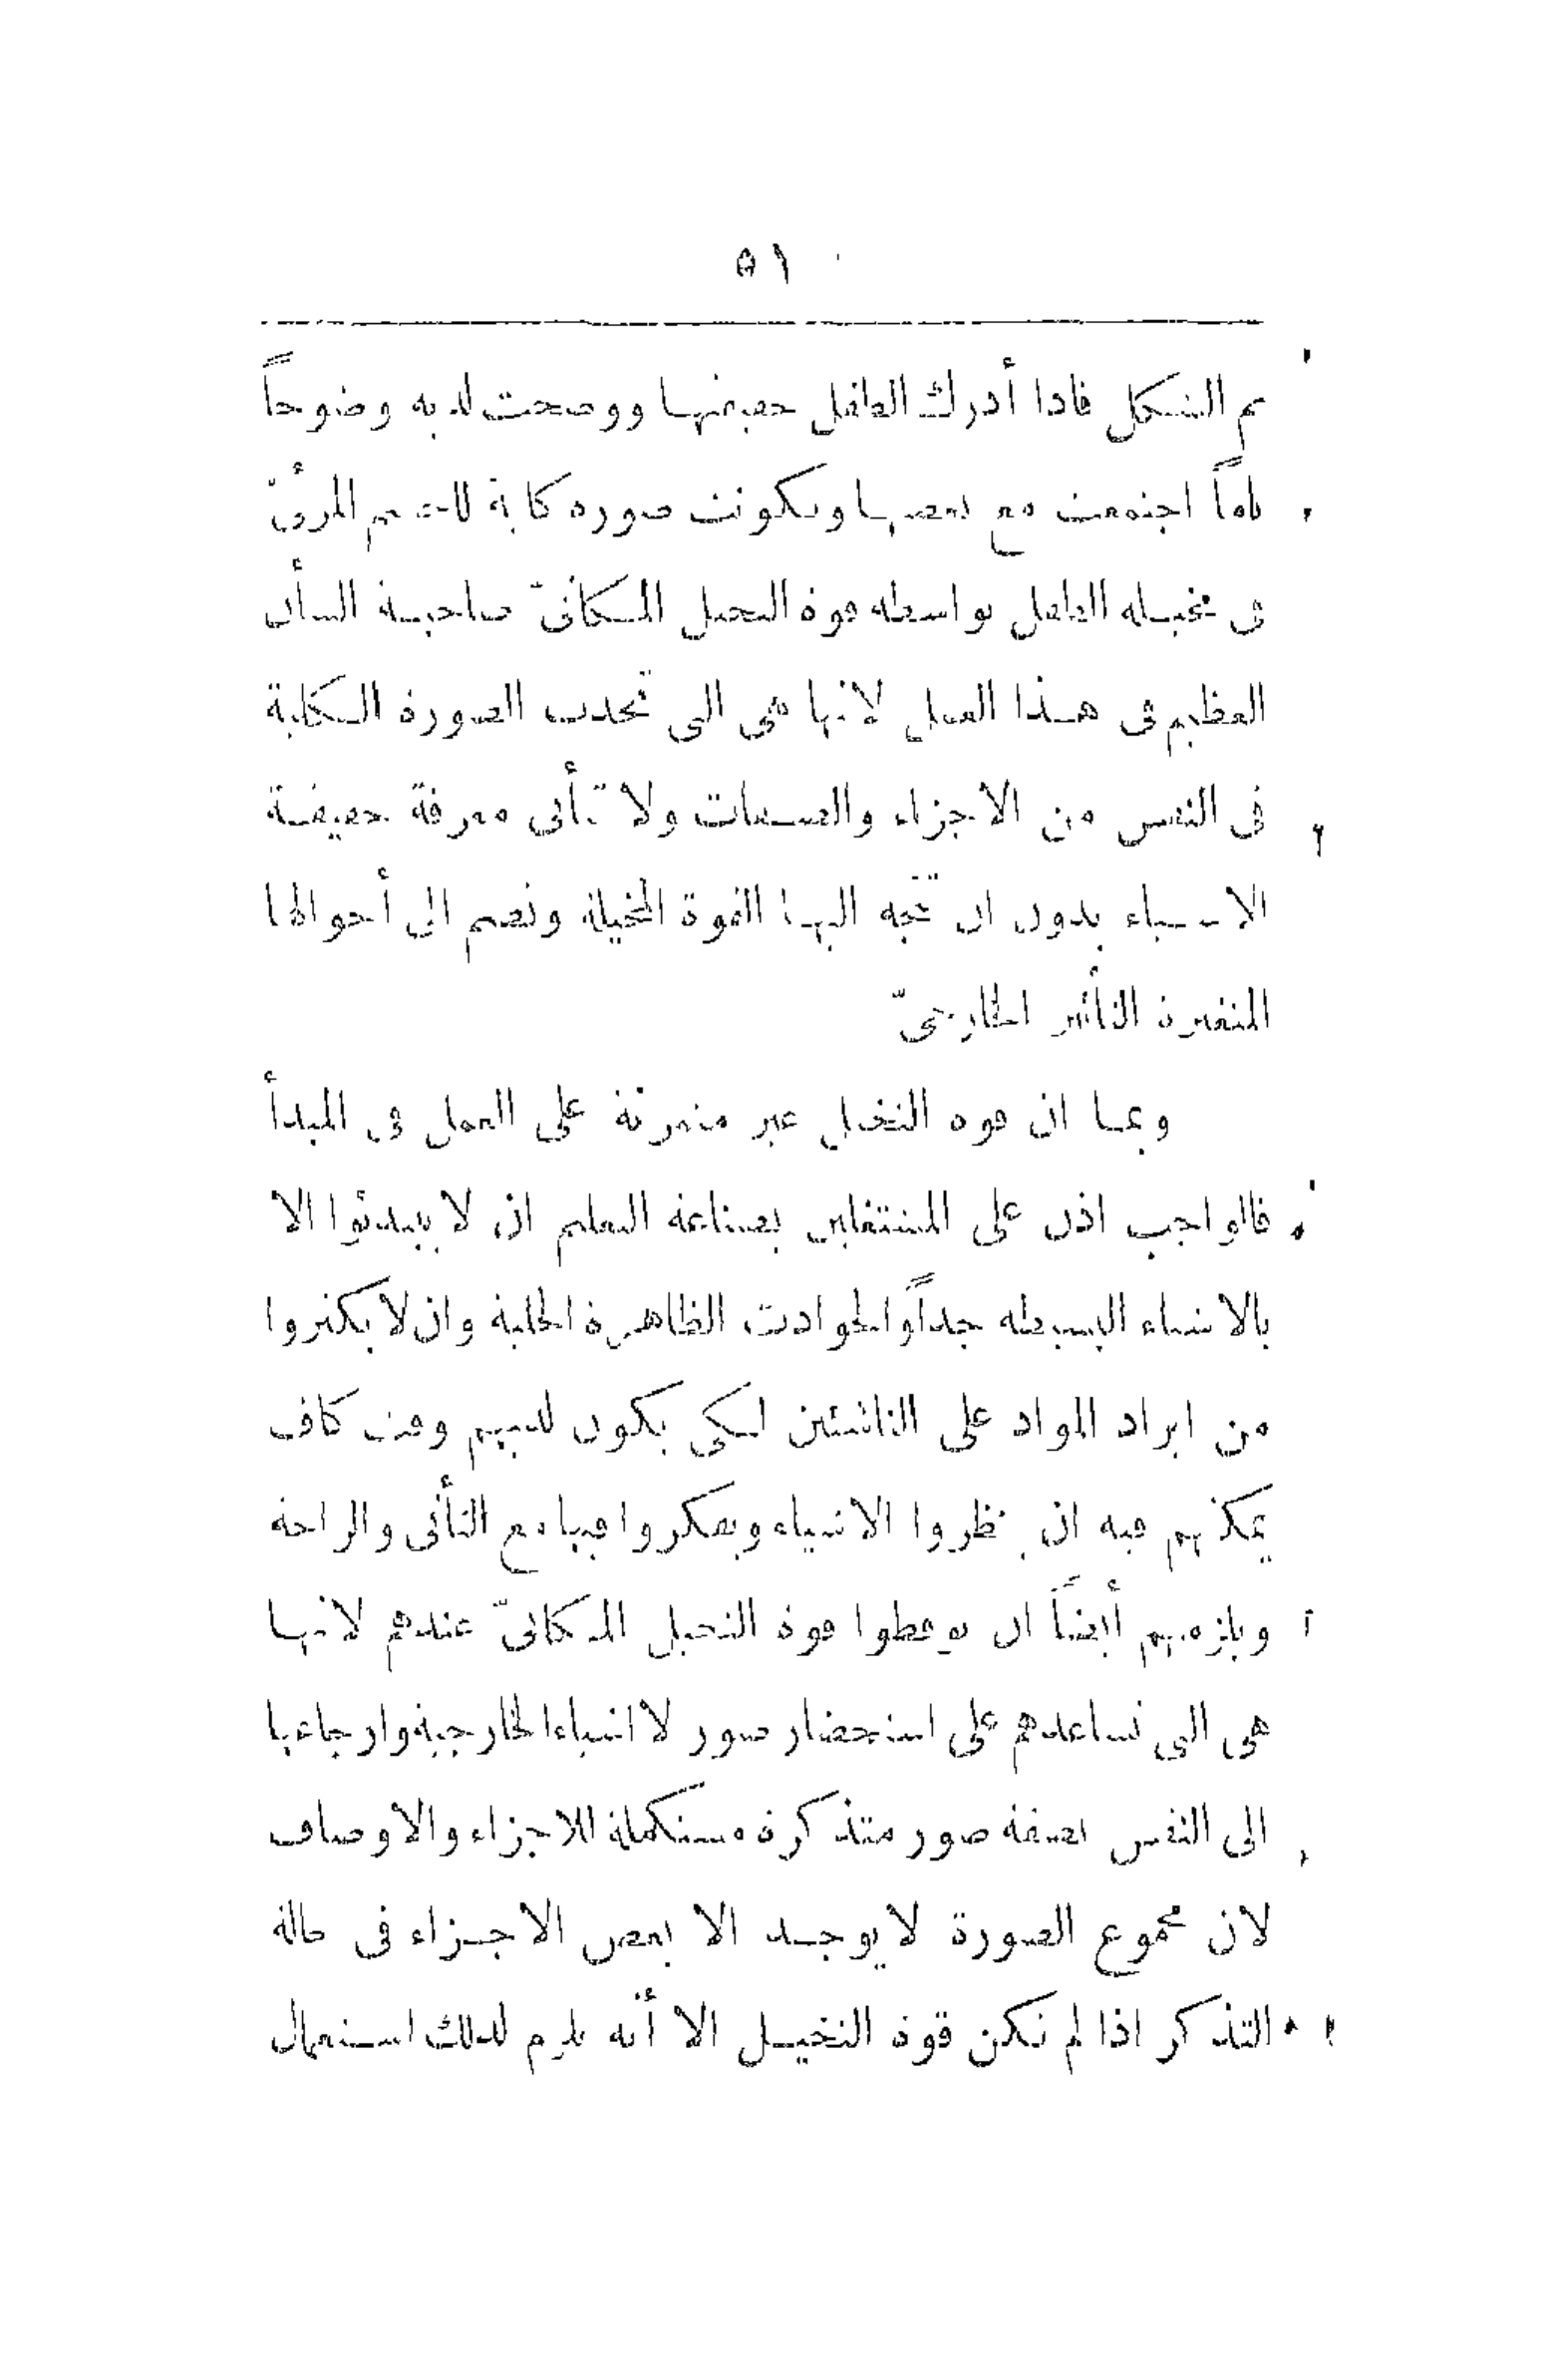 ٥١
ثم الشكل فاذا أدرك الطفل حقيقتها ووضحت لديه وضوحاً
تاماً اجتمعت مع بعضها وتكونت صورة كلية للجسم المرئىّ
فى مخيلة الطفل بواسطة قوة التخيل المكانىّ صاحبة الشأن
العظيم فى هـذا العمل لانها هى التى تحدث الصورة الكلية
فى النفس من الاجزاء والصفات ولا تتأتى معرفة حقيقة
الاشياء بدون ان تتجه اليها القوة المخيلة وتضم الى أحوالها
المتغيرة التأثير الخارجىّ
وبما ان قوة التخيل غير متمرنة على العمل فى المبدأ
فالواجب اذن على المشتغلين بصناعة التعليم ان لا يبتدئوا الا
بالاشياء البسيطة جداً والحوادث الظاهرة الجلية وان لا يكثروا
من ايراد المواد على الناشئين لكى يكون لديهم وقت كاف
يمكنهم فيه ان ينظروا الاشياء ويفكروا فيها مع التأنى والراحة
ويلزمهم أيضاً ان يوقظوا قوة التخيل المكانىّ عندهم لانها
هى التى تساعدهم على استحضار صور لاشياء الخارجية وارجاعها
الى النفس بصفة صور متذكرة مستكملة للاجزاء والاوصاف
لان مجموع الصورة لا يوجد الا بعض الاجزاء فى حالة
التذكر اذا لم تكن قوة التخيل الا أنه يلزم لذلك استعمال